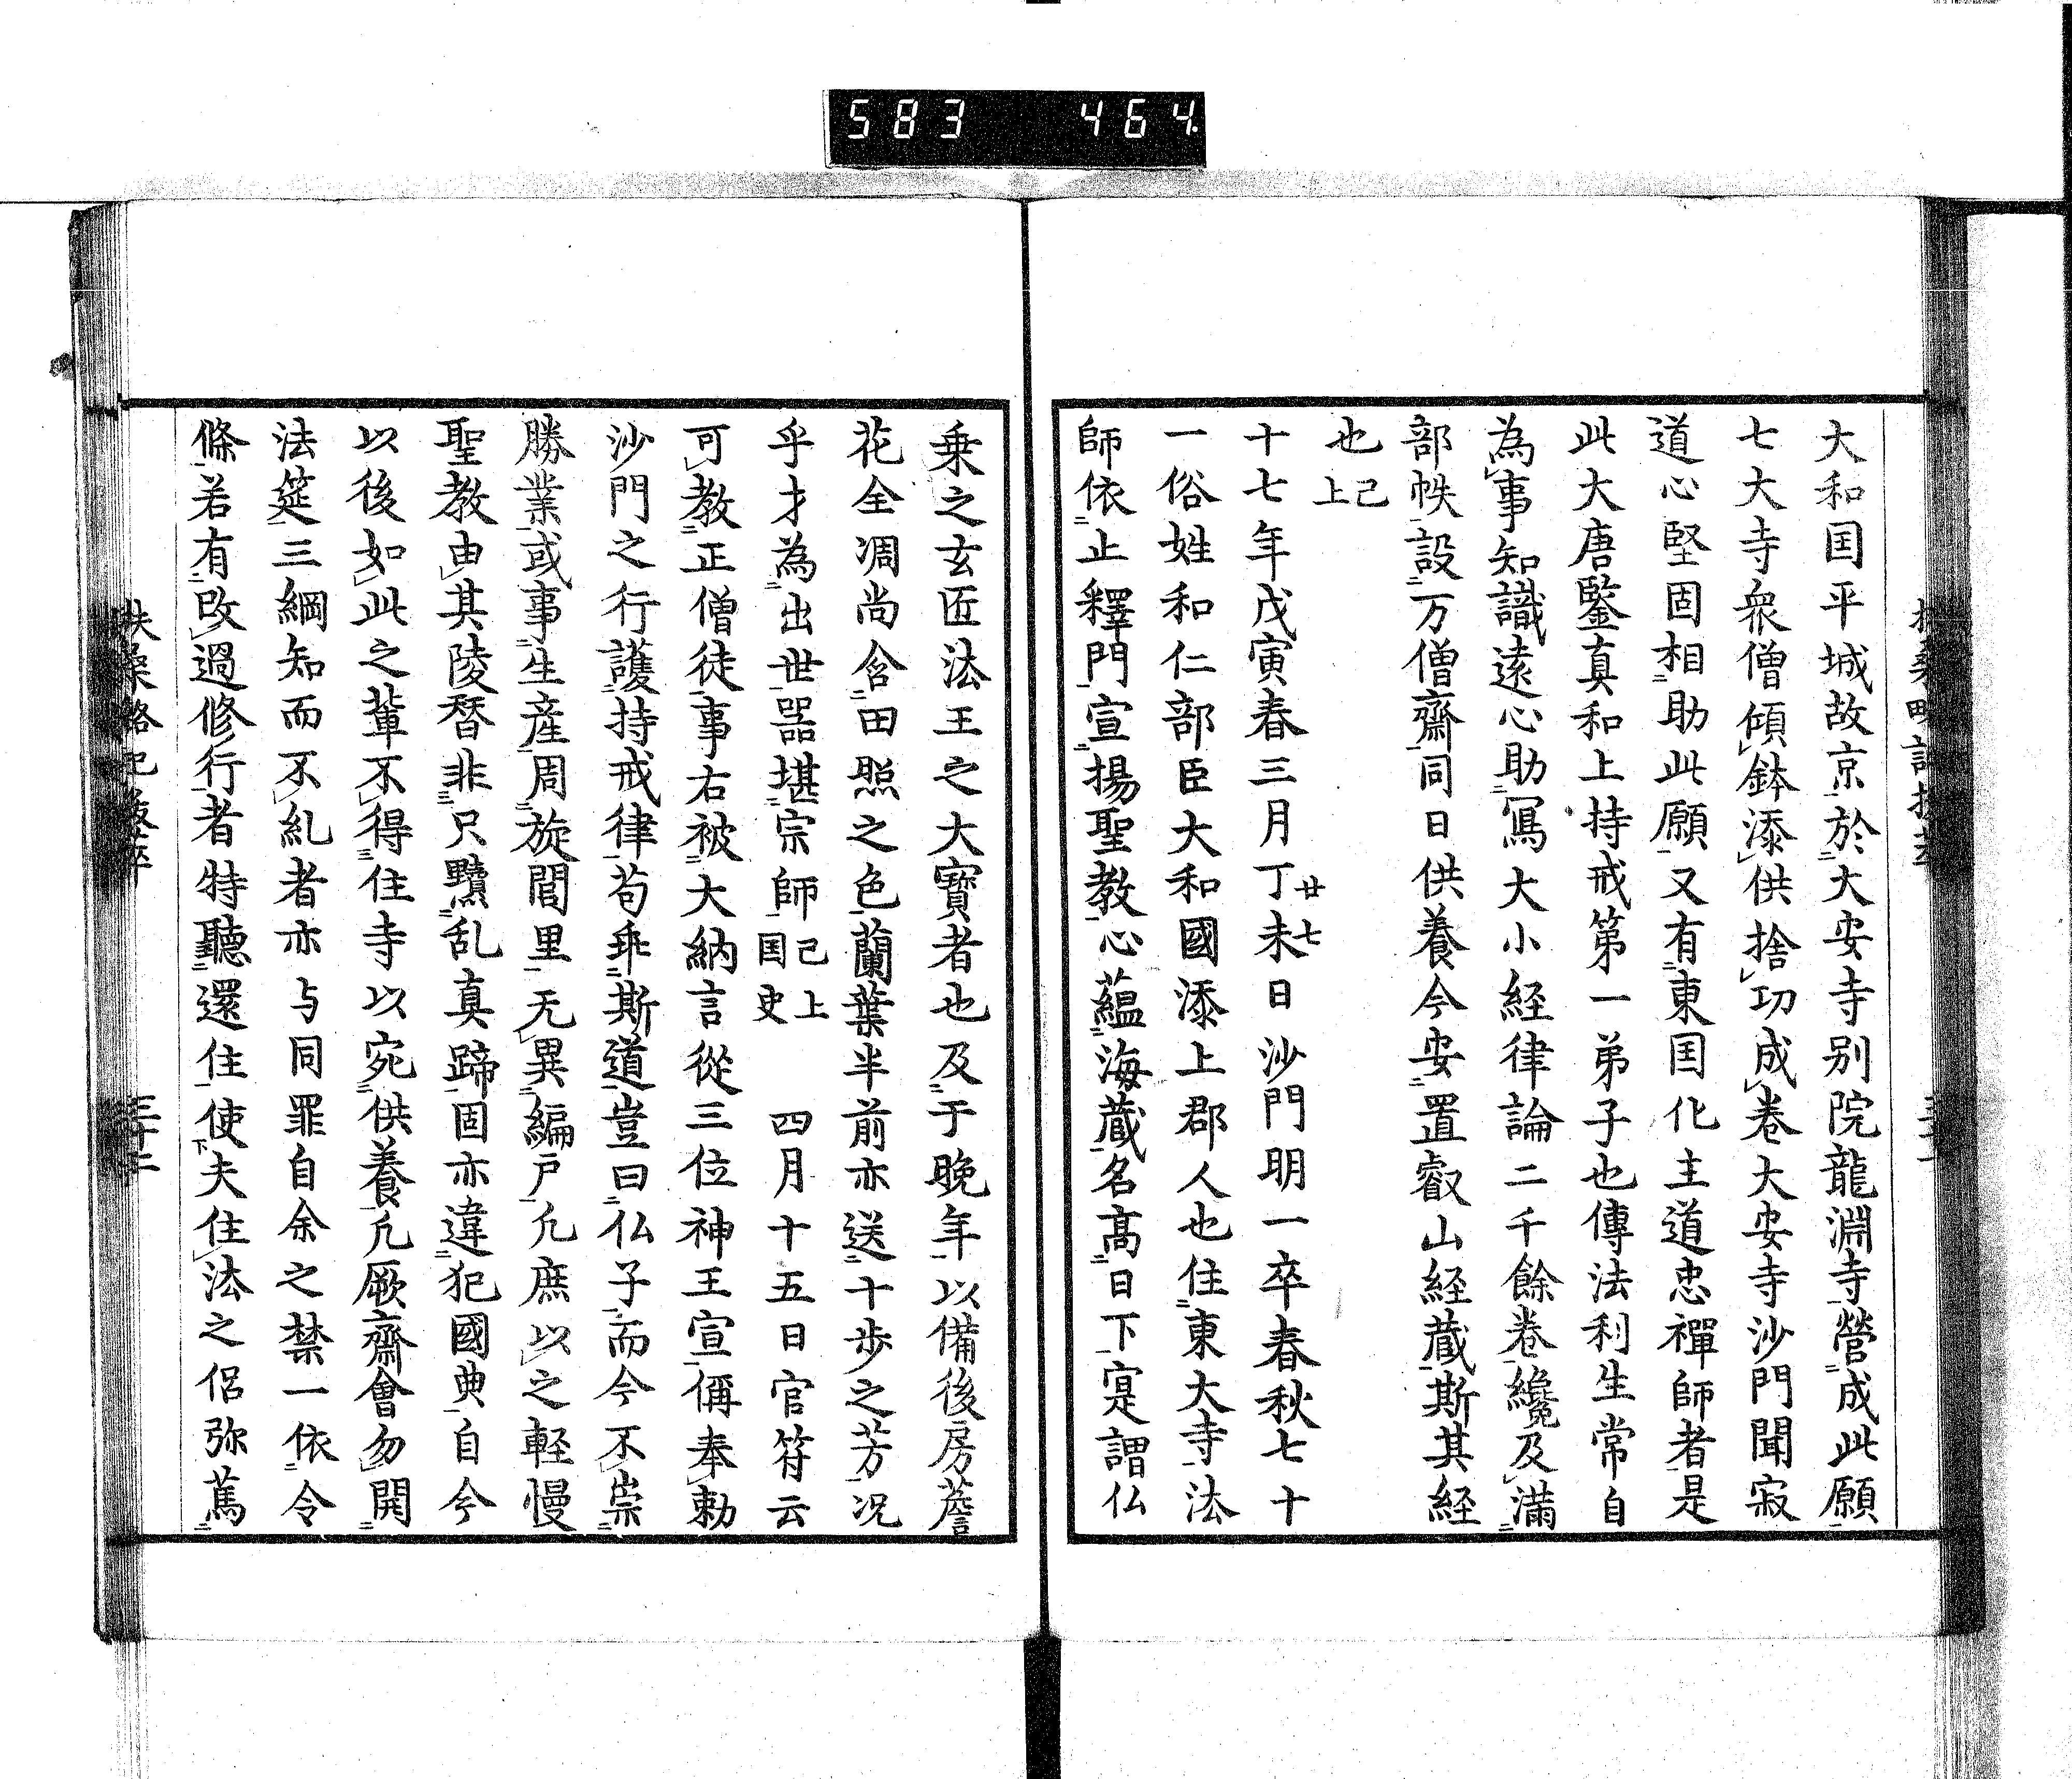 583 464
大和囯平城故京於大安寺別院龍淵寺營成此願
七大寺衆僧傾鉢添供捨功成卷大安寺沙門聞寂
道心堅固相助此願又有東囯化主道忠禪師者是
此大唐鑒真和上持戒第一弟子也傳法利生常自
為事知識遠心助寫大小経律論二千餘卷纔及滿
部帙設万僧齋同日供養今安置叡山経蔵斯其経
也已上
十七年戊寅春三月丁未廿七日沙門明一卒春秋七十
一俗姓和仁部臣大和國添上郡人也住東大寺法
師依止釋門宣揚聖教心蘊海蔵名高日下寔謂仏
乗之玄匠法王之大寳者也及于晩年以備後房薝
花全凋尚含田照之色蘭葉半前亦送十歩之芳况
乎才為出世器堪宗師已上囯史 四月十五日官符云
可教正僧徒事右被大納言從三位神王宣偁奉勅
沙門之行護持戒律苟乖斯道豈曰仏子而今不崇
勝業或事生産周旋閭里无異編戸凢庶以之軽慢
聖教由其陵替非只黷乱真蹄固亦違犯國典自今
以後如此之輩不得住寺以宛供養凢厥齋會勿開
法筵三綱知而不糺者亦与同罪自余之禁一依令
條若有改過修行者特聽還住使夫住法之侶弥篤
扶桑略記抜萃 三十二